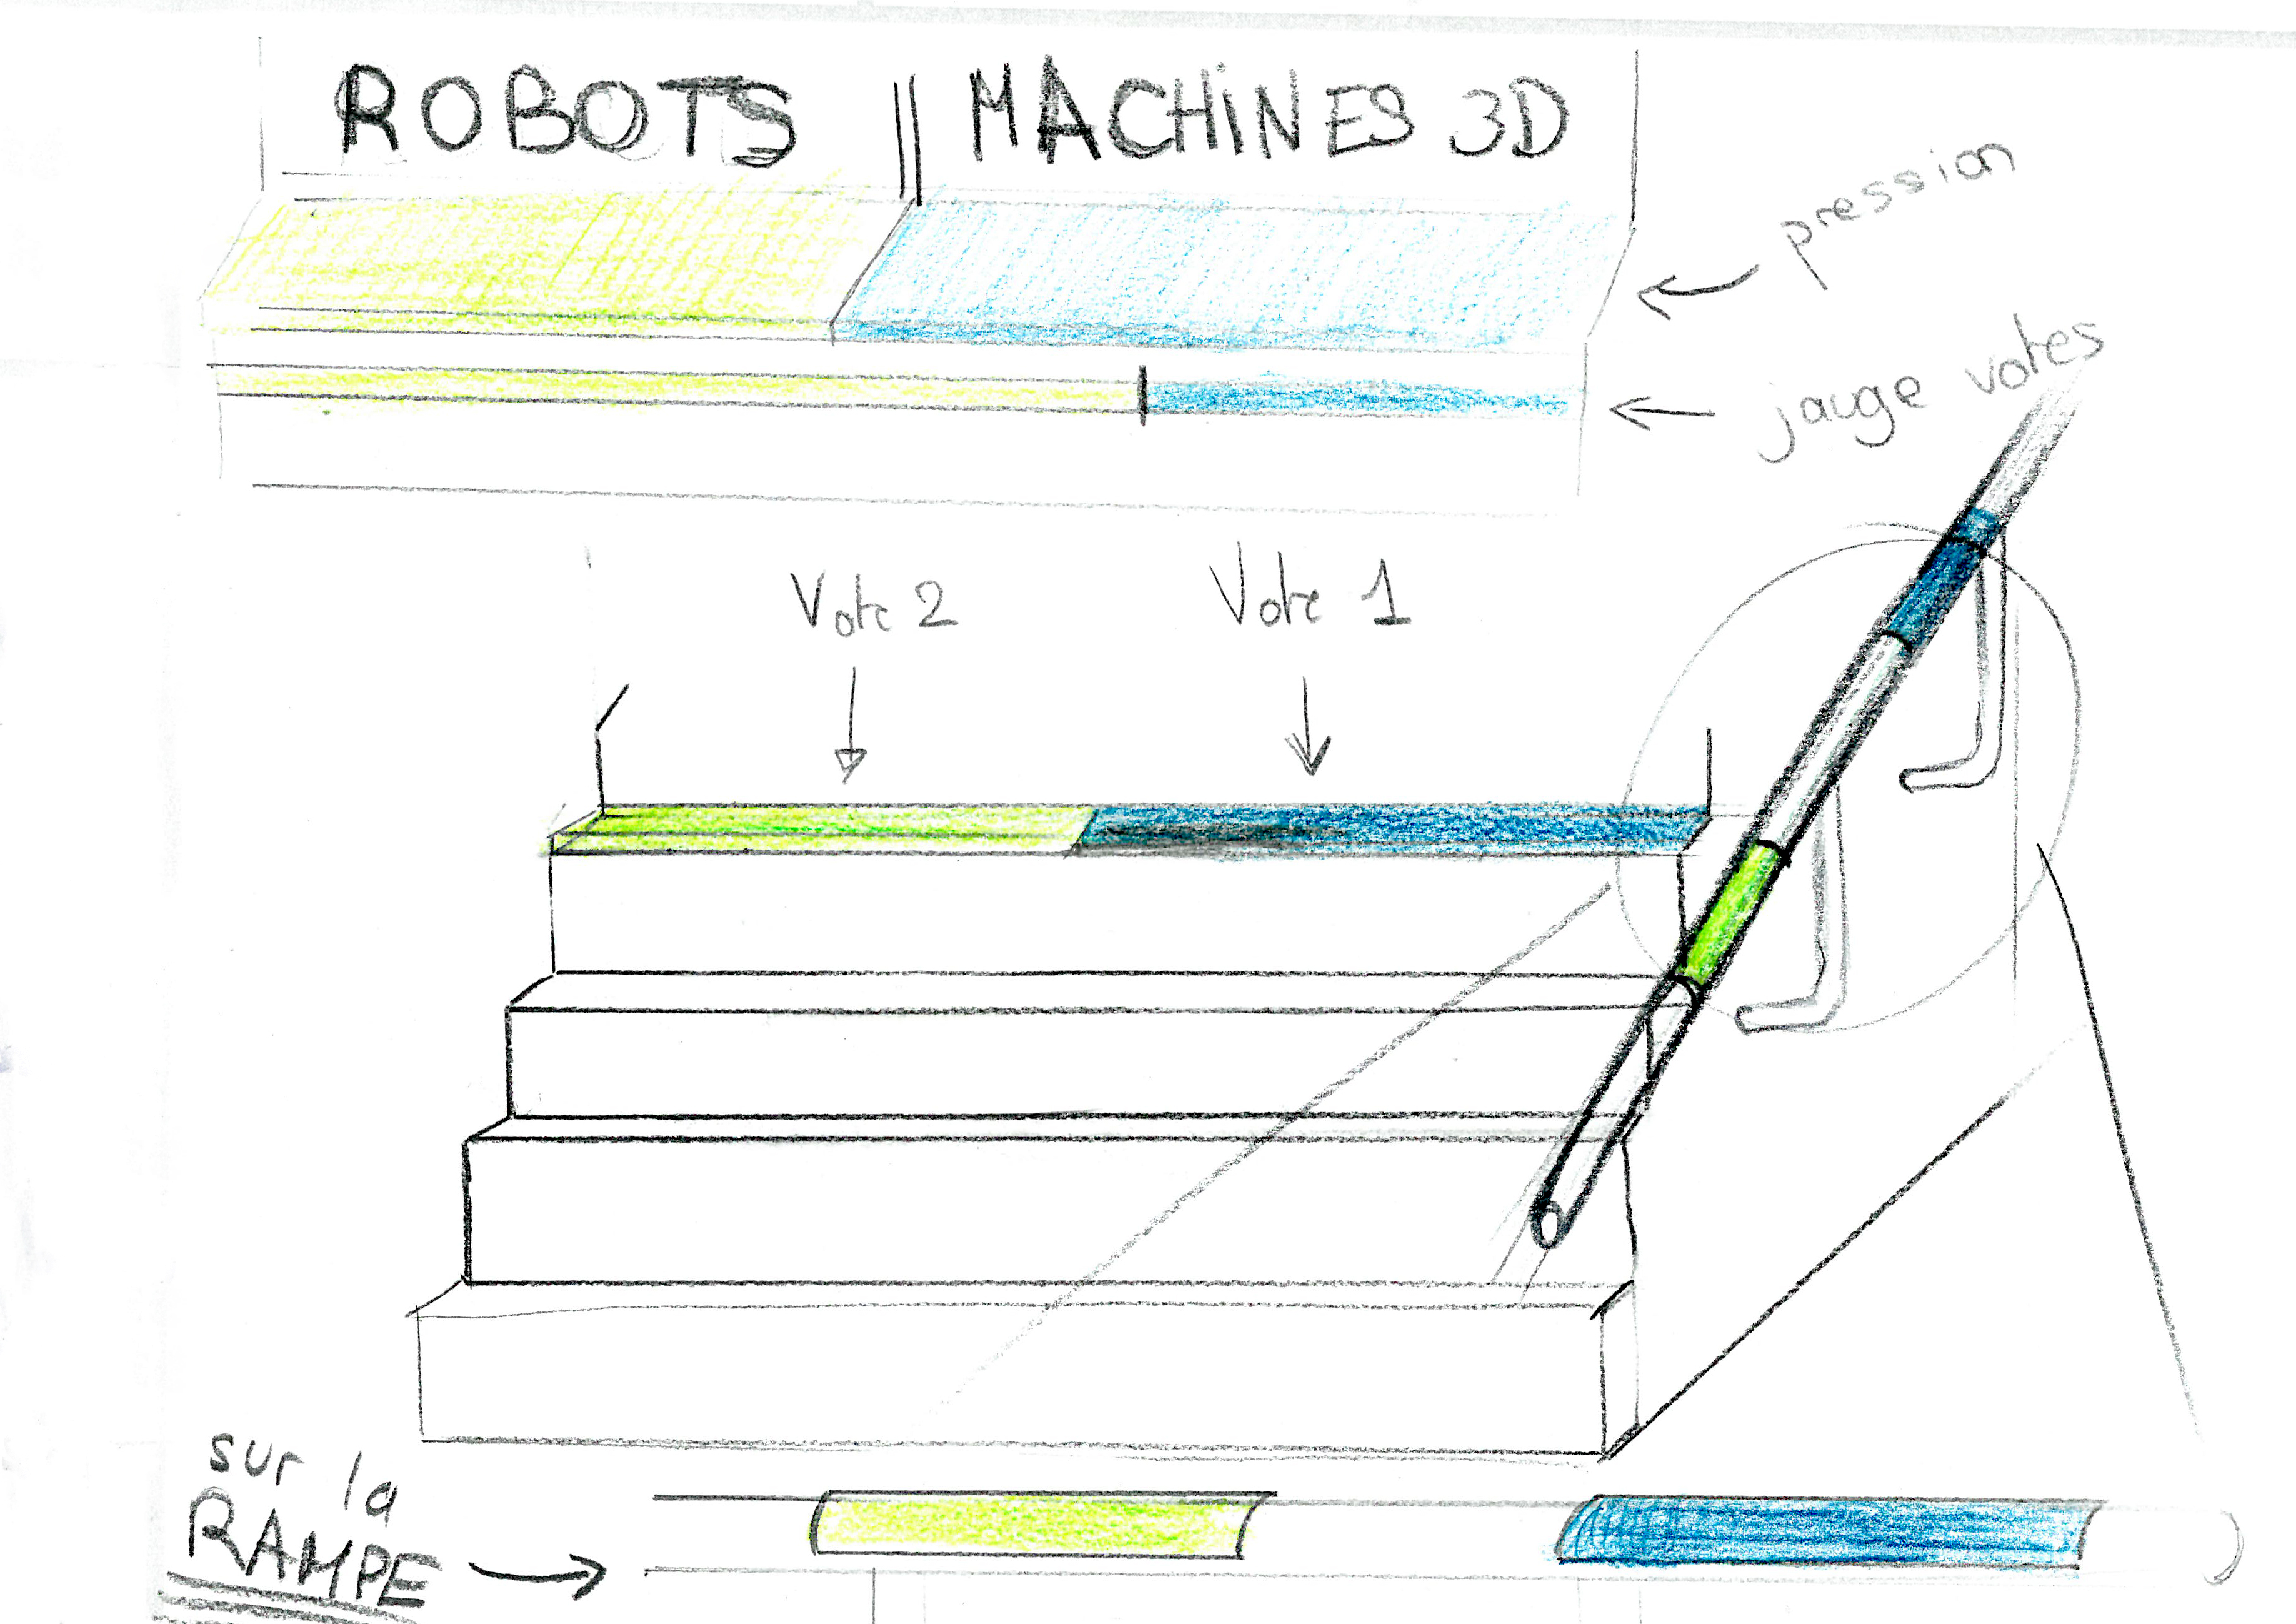 ROBOTS || MACHINES 3D
pression
jauge votes
Vote 2
Vote 1
sur la
RAMPE